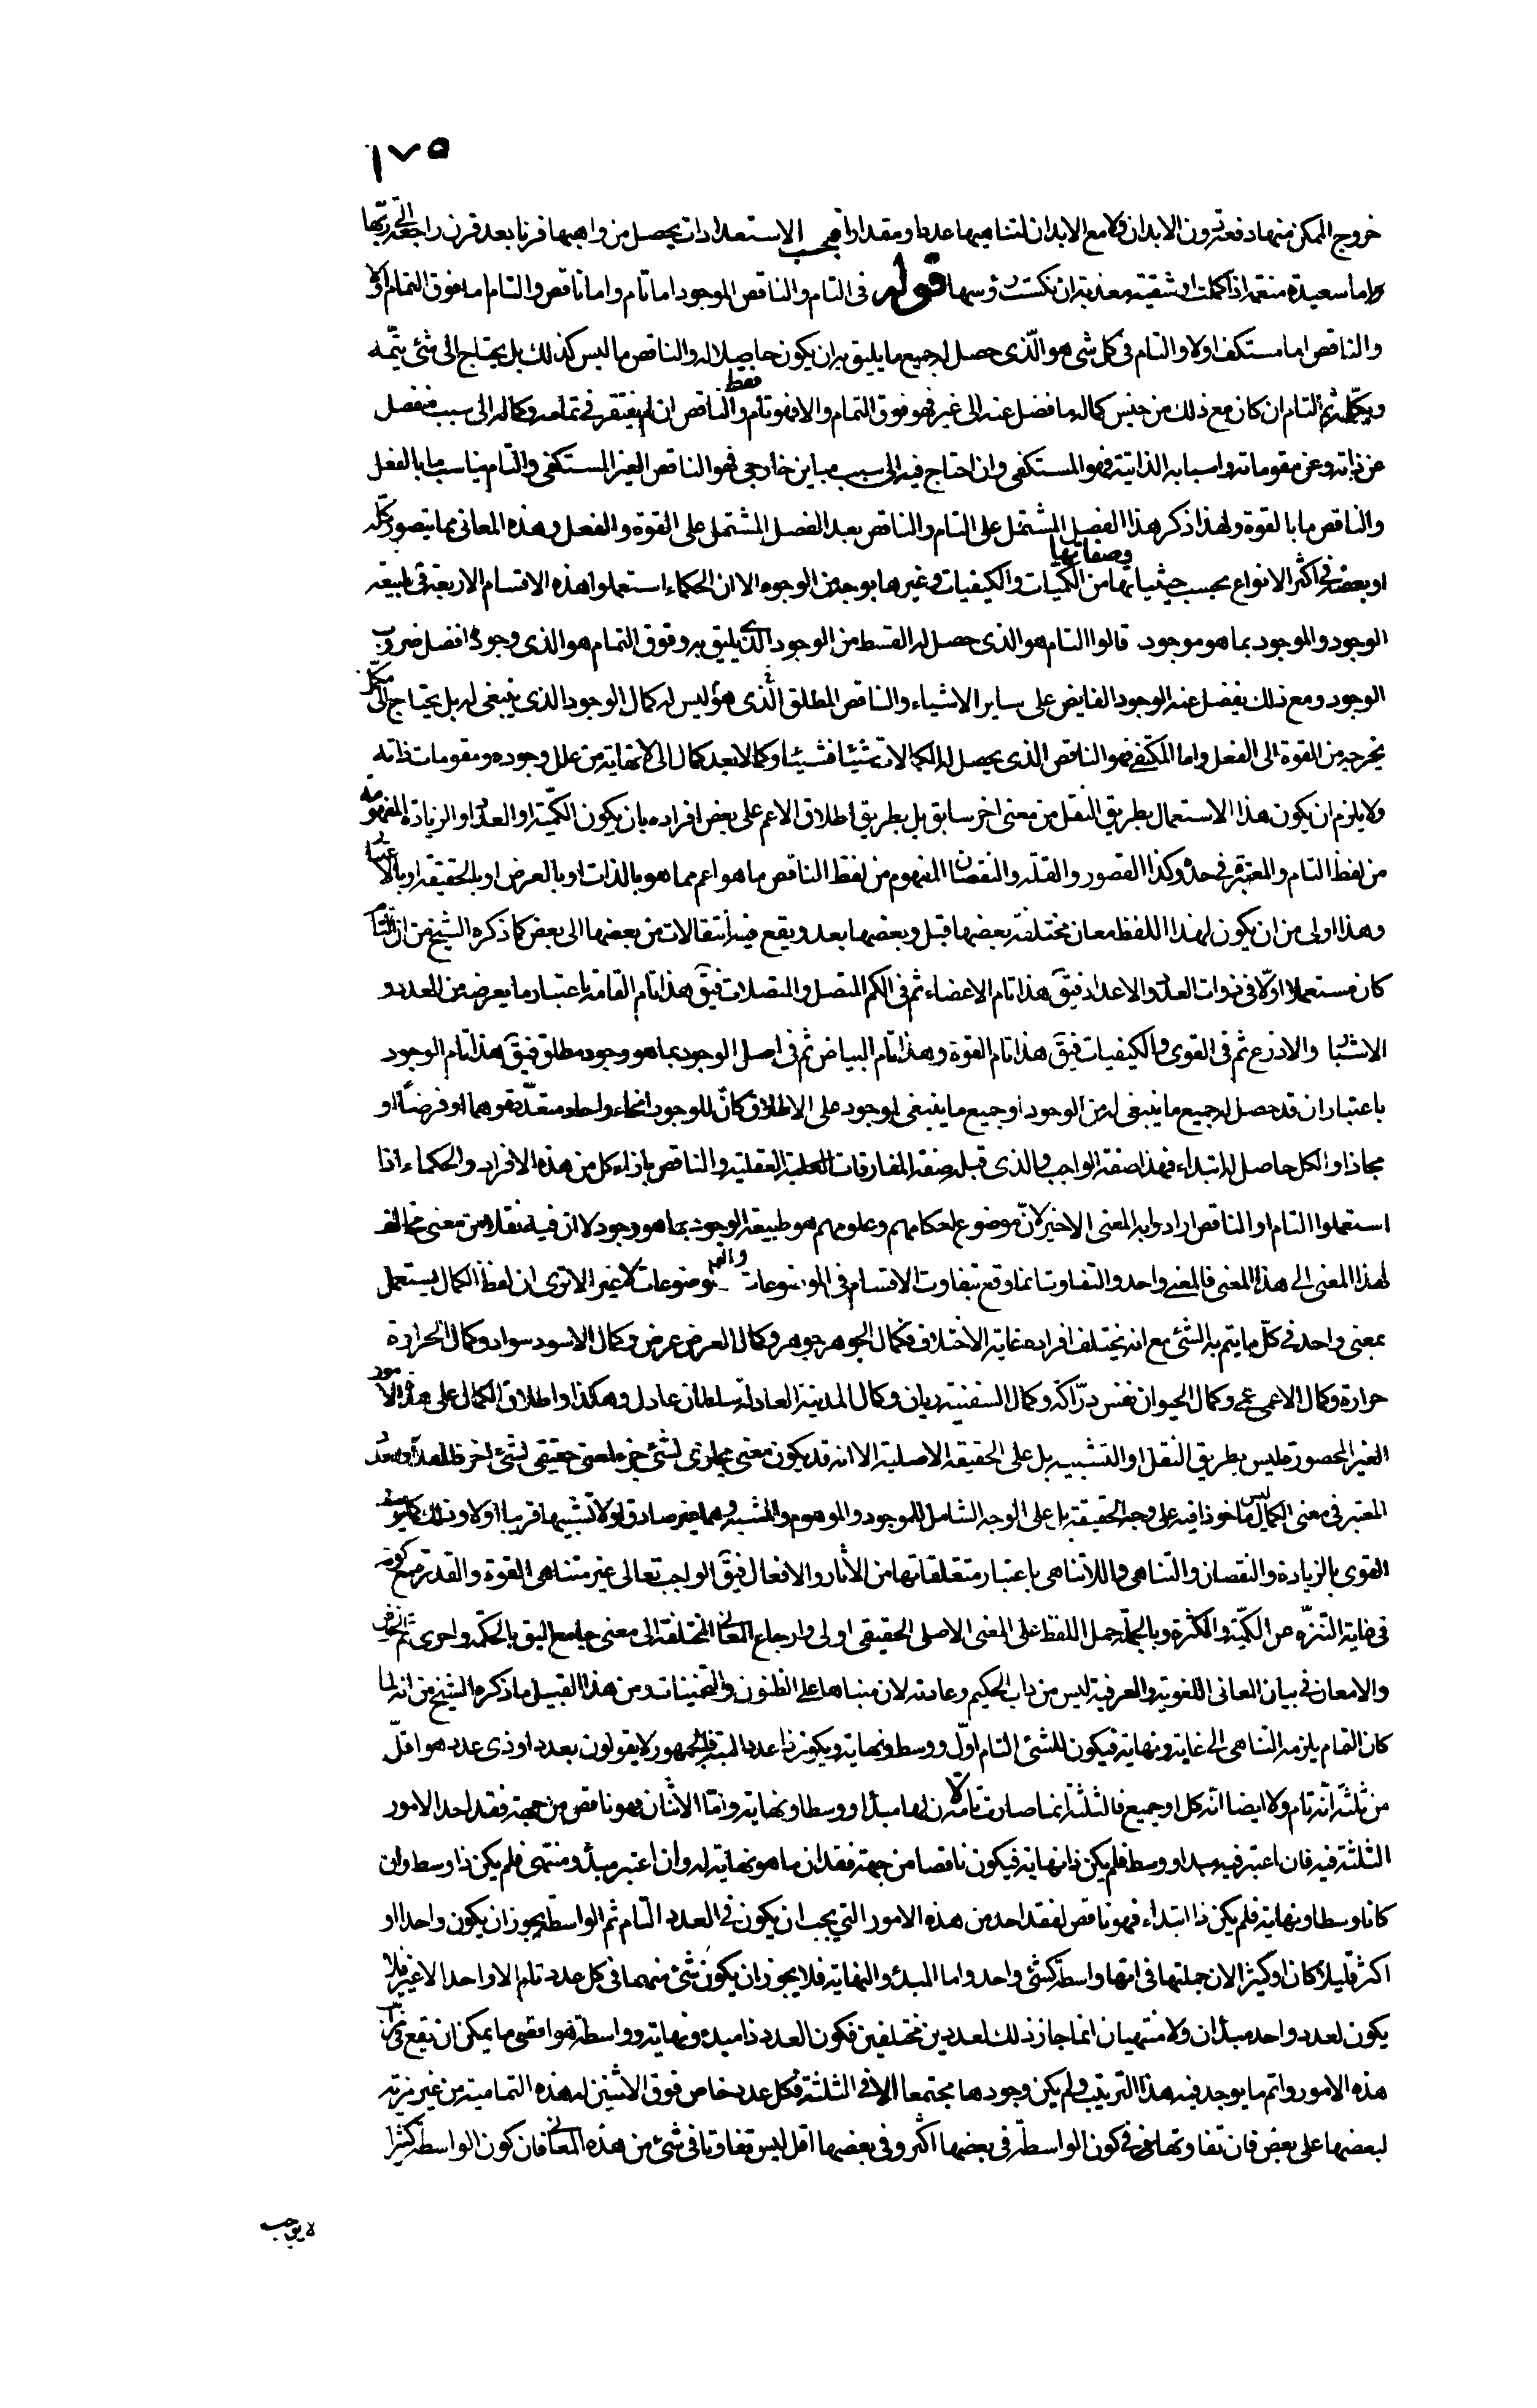 ١٧٥
خروج الممكن منها دفعة دون الابدان ولا مع الابدان لتناهيها عددا ومقدارا فبحسب الاستعدادات يحصل من واهبها قرنا بعد قرن راجعة الى ربها
واما سعيدة منعمة اذا كملت او شقية معذبة ان نكست رؤسها قوله فى التام والناقص الموجود اما تام واما ناقص والتام اما فوق التمام اولا
والناقص اما مستكف اولا والتام فى كل شئ هو الّذى حصل له جميع ما يليق به ان يكون حاصلا له والناقص ما ليس كذلك بل يحتاج الى شئ يتمّه
ويكمّله ثم التام ان كان مع ذلك من جنس كماله ما فضل عنه الى غيره فهو فوق التمام والا فهو تام فقط والناقص ان لم يفتقر فى تمامه وكماله الى سبب منفصل
عن ذاته وعن مقوماته واسبابه الذاتية فهو المستكفى وان احتاج فيه الى سبب مباين خارجى فهو الناقص الغير المستكفى والتام يناسب ما بالفعل
والناقص ما بالقوة ولهذا ذكر هذا الفصل المشتمل على التام والناقص بعد الفصل المشتمل على القوة والفعل وهذه المعانى مما يتصور كلّه
او بعضه فى اكثر الانواع بحسب حيثياتها وصفاتها من الكميّات والكيفيات وغيرها بوجه من الوجوه الا ان الحكماء استعملوا هذه الاقسام الاربعة فى طبيعة
الوجود والموجود بما هو موجود قالوا التام هو الذى حصل له القسط من الوجود الذى يليق به وفوق التمام هو الذى وجوده افضل ضروب
الوجود ومع ذلك يفضل عنه الوجود الفايض على ساير الاشياء والناقص المطلق الّذى هو ليس له كمال الوجود الذى ينبغى له بل يحتاج الى مكمّل
يخرجه من القوة الى الفعل واما المكتفى فهو الناقص الذى يحصل له الكمالات شيئا فشيئا وكمالا بعد كمال الى لا نهاية من علل وجوده ومقومات ذاته
ولا يلزم ان يكون هذا الاستعمال بطريق النقل من معنى اخر سابق بل بطريق اطلاق الاعم على بعض افراده بان يكون الكميّة او العدد او الزيادة المفهومة
من لفظ التام والمعتبر فى حده وكذا القصور والقلّة والنقصان المفهوم من لفظ الناقص ما هو اعم مما هو بالذات او بالعرض او بالحقيقة او بالاعتبار
وهذا اولى من ان يكون لهذا اللفظ معان مختلفة بعضها قبل وبعضها بعد ويقع فيه انتقالات من بعضها الى بعض كما ذكره الشيخ من ان التام
كان مستعملا اوّلا فى ذوات العدد والاعداد فيقّ هذا تام الاعضاء ثم فى الكم المتصل والمتصلات فيقّ هذا تام القامة باعتبار ما يعرضه من العدد و
الاشبار والاذرع ثم فى القوى والكيفيات فيقّ هذا تام القوة وهذا تام البياض ثم فى اصل الوجود بما هو وجود مطلق فيقّ هذا تام الوجود
باعتبار ان قد حصل له جميع ما ينبغى له من الوجود او جميع ما ينبغى لوجود على الاطلاق كانّ للوجود انحاء واحاد متعدّدة وهما او فرضا او
مجازا والكل حاصل له ابتداء فهذا صفة الواجب والذى قبله صفة المفارقات العقلية والناقص بازاء كل من هذه الافراد والحكماء اذا
استعملوا التام او الناقص ارادوا به المعنى الاخير لانّ موضوع احكامهم وعلومهم هو طبيعة الوجود بما هو وجود لا ان فيه نقلا من معنى مخالف
لهذا المعنى الى هذا المعنى فالمعنى واحد والتفاوت انما وقع بتفاوت الاقسام فى الموضوعات لا غير الا ترى ان لفظ الكمال يستعمل
بمعنى واحد فى كلّ ما يتم به الشئ مع انه يختلف افراده غاية الاختلاف فكمال الجوهر جوهر وكمال العرض عرض وكمال الاسود سواد وكمال الحرارة
حرارة وكمال الاعمى عمى وكمال الحيوان نفس درّاكة وكمال السفينة ربان وكمال المدينة العادلة سلطان عادل وهكذا واطلاق الكمال على هذه الامور
الغير المحصورة ليس بطريق النقل او التشبيه بل على الحقيقة الاصلية الا انه قد يكون معنى مجازى لشئ جزء لمعنى حقيقى لشئ اخر
المعتبر فى معنى الكمال ليس ماخوذا فيه على وجه الحقيقة بل على الوجه الشامل للموجود والموهوم والمشبه
القوى بالزيادة والنقصان والتناهى واللاتناهى باعتبار متعلقاتها من الآثار والافعال فيقّ الواجب تعالى غير متناهى القوة والقدرة مع كونه
فى غاية التنزّه عن الكميّة والكثرة وبالجملة حمل اللفظ على المعنى الاصلى الحقيقى اولى وارجاع المعانى المختلفة الى معنى جامع اليق بالحكمة واحرى ثم الخوض
والامعان فى بيان المعانى اللغوية والعرفية ليس من داب الحكيم وعادته لان مبناها على الظنون والتخمينات ومن هذا القبيل ما ذكره الشيخ من انه لما
كان التمام يلزمه التناهى الى غاية ونهاية فيكون للشئ التام اوّل ووسط ونهاية ويكون ذا عدد البتة فالجمهور لا يقولون بعدد او ذى عدد هو اقلّ
من ثلثة انّه تام ولا ايضا انّه كل او جميع فالثلثة انما صارت تامّة لان لها مبدأ ووسطا ونهاية وامّا الاثنان فهو ناقص من جهة فقد احد الامور
الثلثة فيه فان اعتبر فيه مبدا ووسط فلم يكن ذا نهاية فيكون ناقصا من جهة فقدان ما هو نهاية له وان اعتبر مبدؤ ومنتهى فلم يكن ذا وسط وان
كانا وسطا ونهاية فلم يكن ذا ابتداء فهو ناقص لفقد احد من هذه الامور التى يجب ان يكون فى العدد التام ثم الواسطة يجوز ان يكون واحدا او
اكثر قليلا كان او كثيرا لان جملتها فى انها واسطة كشئ واحد واما المبدئ والنهاية فلا يجوز ان يكون شئ منهما فى كل عدد تام الا واحدا لا غير فلا
يكون لعدد واحد مبدأن ولا منتهيان انما جاز ذلك لعددين مختلفين فكون العدد ذا مبدء ونهاية وواسطة هو اقصى ما يمكن ان يقع
هذه الامور واتم ما يوجد فيه هذا الترتيب ولم يكن وجودها مجتمعا الا فى الثلثة فكل عدد خاص فوق الاثنين له هذه التمامية من غير مزية
لبعضها على بعض فان تفاوتها فى كون الواسطة فى بعضها اكثر وفى بعضها اقل ليس تفاوتا فى شئ من هذه المعانى فان كون الواسطة كثيرا
لا يوجب